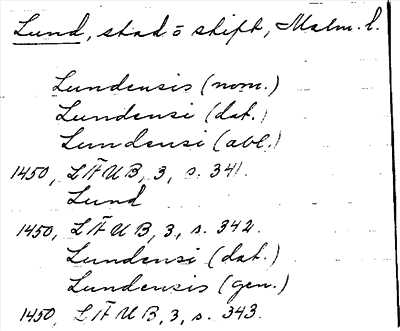 Lund, stad o stift, Malm. l.
Lundensis (nom.)
Lundensi (dat.)
Lundensi (abl.)
1450, LÄUB, 3, s. 341.
Lund
1450, LÄUB, 3, s. 342.
Lundensi (dat.)
Lundensis (gen.)
1450, LÄUB, 3, s. 343.